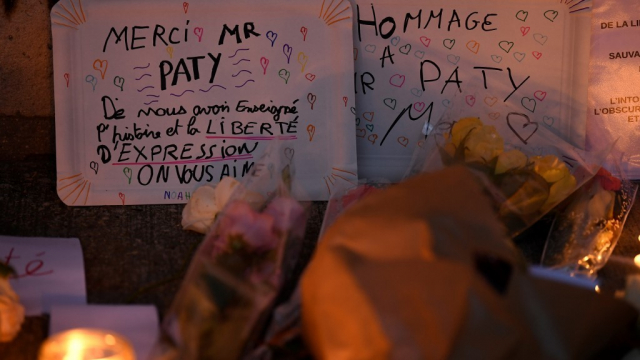 MERCI MR
PATY
De nous avoir Enseigné
l'histoire et la LIBERTÉ
D'EXPRESSION
ON VOUS AIME
NOAH
HOMMAGE
A
MR PATY
M
DE LA LI
SAUVA
L'INTO
L'OBSCUR
té